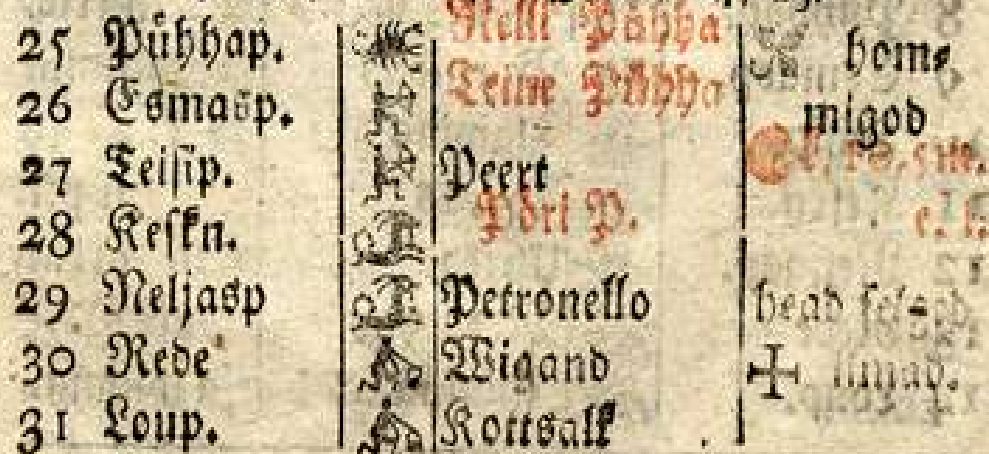 25 Pühhap. Nelli Pühha hom⸗
26 Esmasp. Teine Pühha migod
27 Teisip. Peert
28 Keskn. Pöri P.
29 Neljasp Petronello head
30 Rede Wigand
31 Loup. Kottsalk